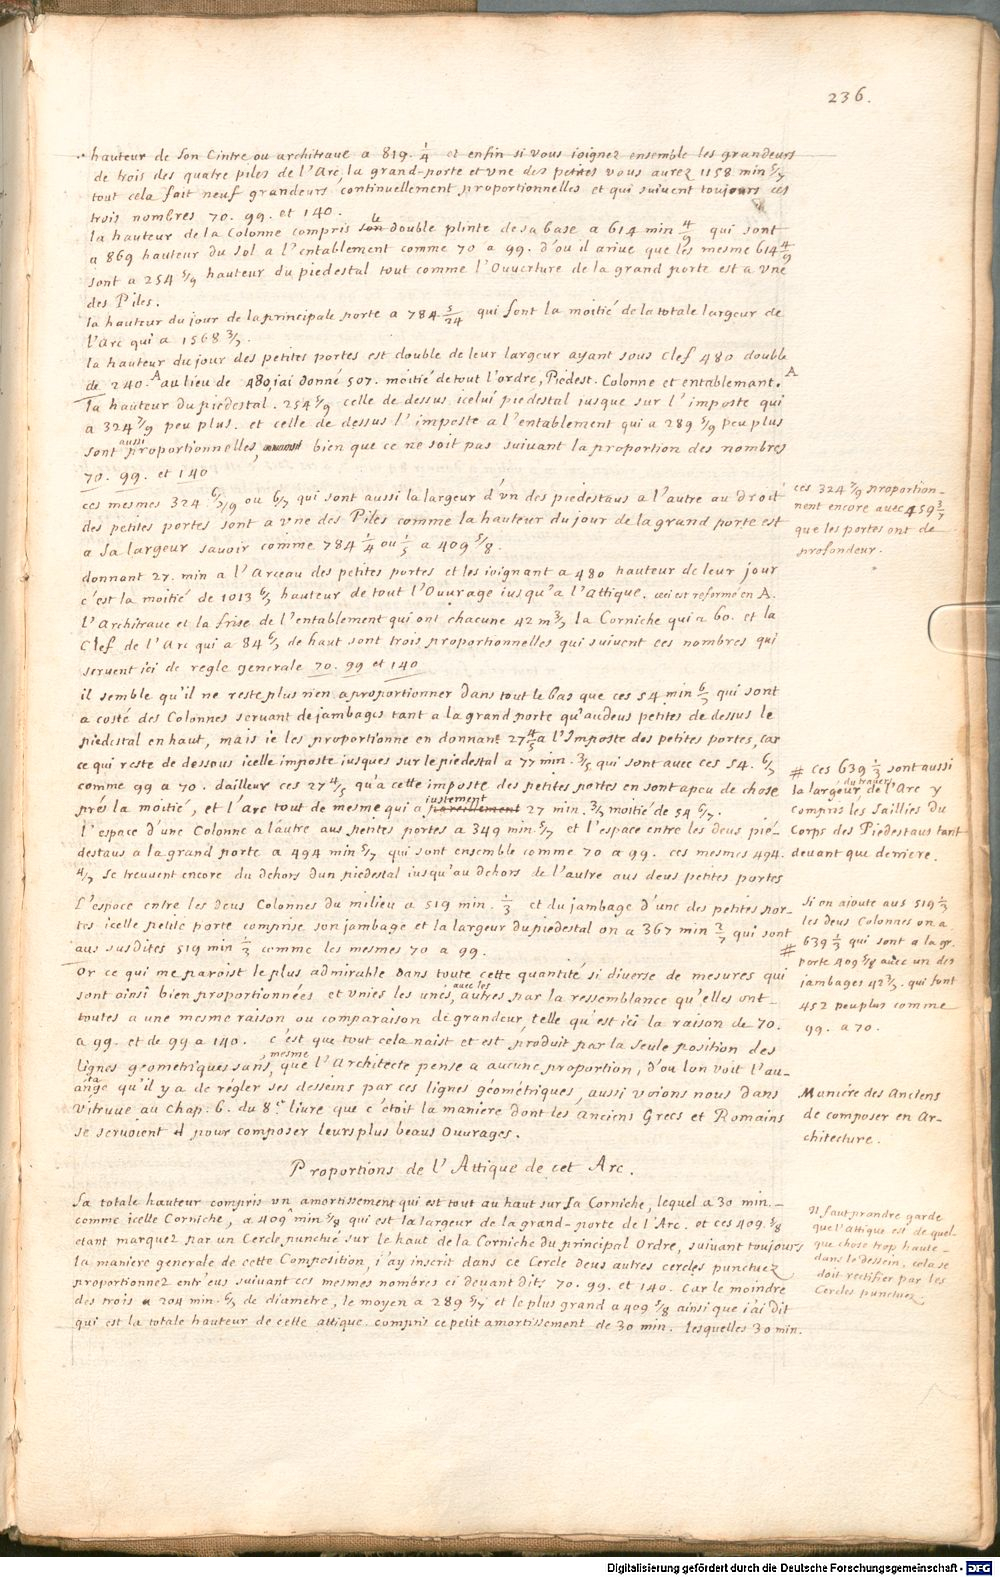 236.
hauteur de son Cintre ou architraue a 819. 1/4 et enfin si vous ioignez ensemble les grandeurs
de trois des quatre piles de l'Arc, la grand-porte et vne des petites vous aurez 1158 min 5/7
tout cela fait neuf grandeurs continuellement proportionnelles et qui suiuent toujours ces
trois nombres 70. 99. et 140.
la hauteur de la Colonne compris le double plinte de sa base a 614 min 4/9 qui sont
a 869 hauteur du sol a l'entablement comme 70 a 99. d'ou il ariue que les mesme 614 4/9
sont a 254 5/9 hauteur du piedestal tout comme l'Ouuerture de la grand porte est a vne
des Piles.
la hauteur du jour de la principale porte a 784 5/24 qui sont la moitié de la totale largeur de
l'Arc qui a 1568 3/7.
la hauteur du jour des petites portes est double de leur largeur ayant sous Clef 480 double
de 240. A au lieu de 480 jai donné 507. moitié de tout l'ordre, Piedest. Colonne et entablemant. A
la hauteur du piedestal. 254 5/9 celle de dessus icelui piedestal iusque sur l'imposte qui
a 324 7/9 peu plus. et celle de dessus l'imposte a l'entablement qui a 289 5/9 peu plus
sont aussi proportionnelles, bien que ce ne soit pas suiuant la proportion des nombres
70. 99. et 140
ces mesmes 324 ou 6/7 qui sont aussi la largeur d'vn des piedestaus a l'autre au droit
des petites portes sont a vne des Piles comme la hauteur du jour de la grand porte est
a sa largeur sauoir comme 784 1/4 ou 1/5 a 409 5/8.
ces 324 7/9 proportion-
nent encore auec 459 3/7
que les portes ont de
profondeur.
donnant 27. min a l'Arceau des petites portes et les ioignant a 480 hauteur de leur jour
c'est la moitié de 1013 6/7 hauteur de tout l'Ouurage iusqu'a l'Attique. ceci est reformé en A.
L'Architraue et la frise de l'entablement qui ont chacune 42 m 3/7 la Corniche qui a 60. et la
Clef de l'Arc qui a 84 6/7 de haut sont trois proportionnelles qui suiuent ces nombres qui
seruent ici de regle generale 70. 99 et 140
il semble qu'il ne reste plus rien a proportionner dans tout le bas que ces 54 min 6/7 qui sont
a costé des Colonnes seruant de jambages tant a la grand porte qu'au deus petites de dessus le
piedestal en haut, mais ie les proportionne en donnant 27 4/5 a l'Imposte des petites portes, car
ce qui reste de dessous icelle imposte iusques sur le piedestal a 77 min. 3/5 qui sont auec ces 54. 6/7
comme 99 a 70. dailleur ces 27 4/5 qu'a cette imposte des petites portes en sont apeu de chose
prés la moitié, et l'arc tout de mesme qui a justement 27 min. 3/7 moitié de 54 6/7.
L'espace d'une Colonne a lautre aus petites portes a 349 min. 5/7 et l'espace entre les deus pié-
destaus a la grand porte a 494 min 5/7 qui sont ensemble comme 70 a 99. ces mesmes 494.
4/7 se treuuent encore du dehors dun piedestal iusqu'au dehors de l'autre aus deus petites portes
# Ces 639 1/3 sont aussi
la largeur du trauers de l'Arc y
compris les saillies du
Corps des Piedestaus tant
deuant que derriere.
L'espace entre les deus Colonnes du milieu a 519 min. 1/3 et du jambage d'une des petites por-
tes icelle petite porte comprise son jambage et la largeur du piedestal on a 367 min 2/7 qui sont
aus susdites 519 min 1/3 comme les mesmes 70 a 99.
Si on ajoute aus 519 1/3
les deus Colonnes on a
# 639 1/3 qui sont a la gr.
porte 409 5/8 auec un des
jambages 42 3/7. qui font
452 peu plus comme
99. a 70.
Or ce qui me paroist le plus admirable dans toute cette quantité si diverse de mesures qui
sont ainsi bien proportionnées et vnies les unes auec les autres par la ressemblance qu'elles ont
toutes a une mesme raison ou comparaison de grandeur, telle qu'est ici la raison de 70.
a 99. et de 99 a 140. c'est que tout cela naist et est produit par la seule position des
lignes geometriques sans mesme que l'Architecte pense a aucune proportion, d'ou lon voit l'au-
antage qu'il y a de régler ses desseins par ces lignes géométriques, aussi voions nous dans
Vitruue au Chap. 6. du 8.e liure que c'étoit la maniere dont les Anciens Grecs et Romains
se seruoient pour composer leurs plus beaus Ouurages.
Maniere des Anciens
de composer en Ar-
chitecture.
Proportions de l'Attique de cet Arc.
Sa totale hauteur compris vn amortissement qui est tout au haut sur sa Corniche, lequel a 30 min.
comme icelle Corniche, a 409 min 5/8 qui est la largeur de la grand-porte de l'Arc. et ces 409. 5/8
etant marquez par un Cercle punctué sur le haut de la Corniche du principal Ordre, suiuant toujours
la maniere generale de cette Composition, i'ay inscrit dans ce Cercle deus autres cercles punctuez
proportionnez entr'eus suiuant ces mesmes nombres ci deuant dits 70. 99. et 140. car le moindre
des trois a 204 min. 6/7 de diametre, le moyen a 289 5/7 et le plus grand a 409 5/8 ainsi que i'ai dit
qui est la totale hauteur de cette attique compris ce petit amortissement de 30 min. lesquelles 30 min.
Il faut prandre garde
que l'Attique est de quel-
que chose trop haute
dans le dessein, cela se
doit rectifier par les
Cercles punctuez.
Digitalisierung gefördert durch die Deutsche Forschungsgemeinschaft - DFG